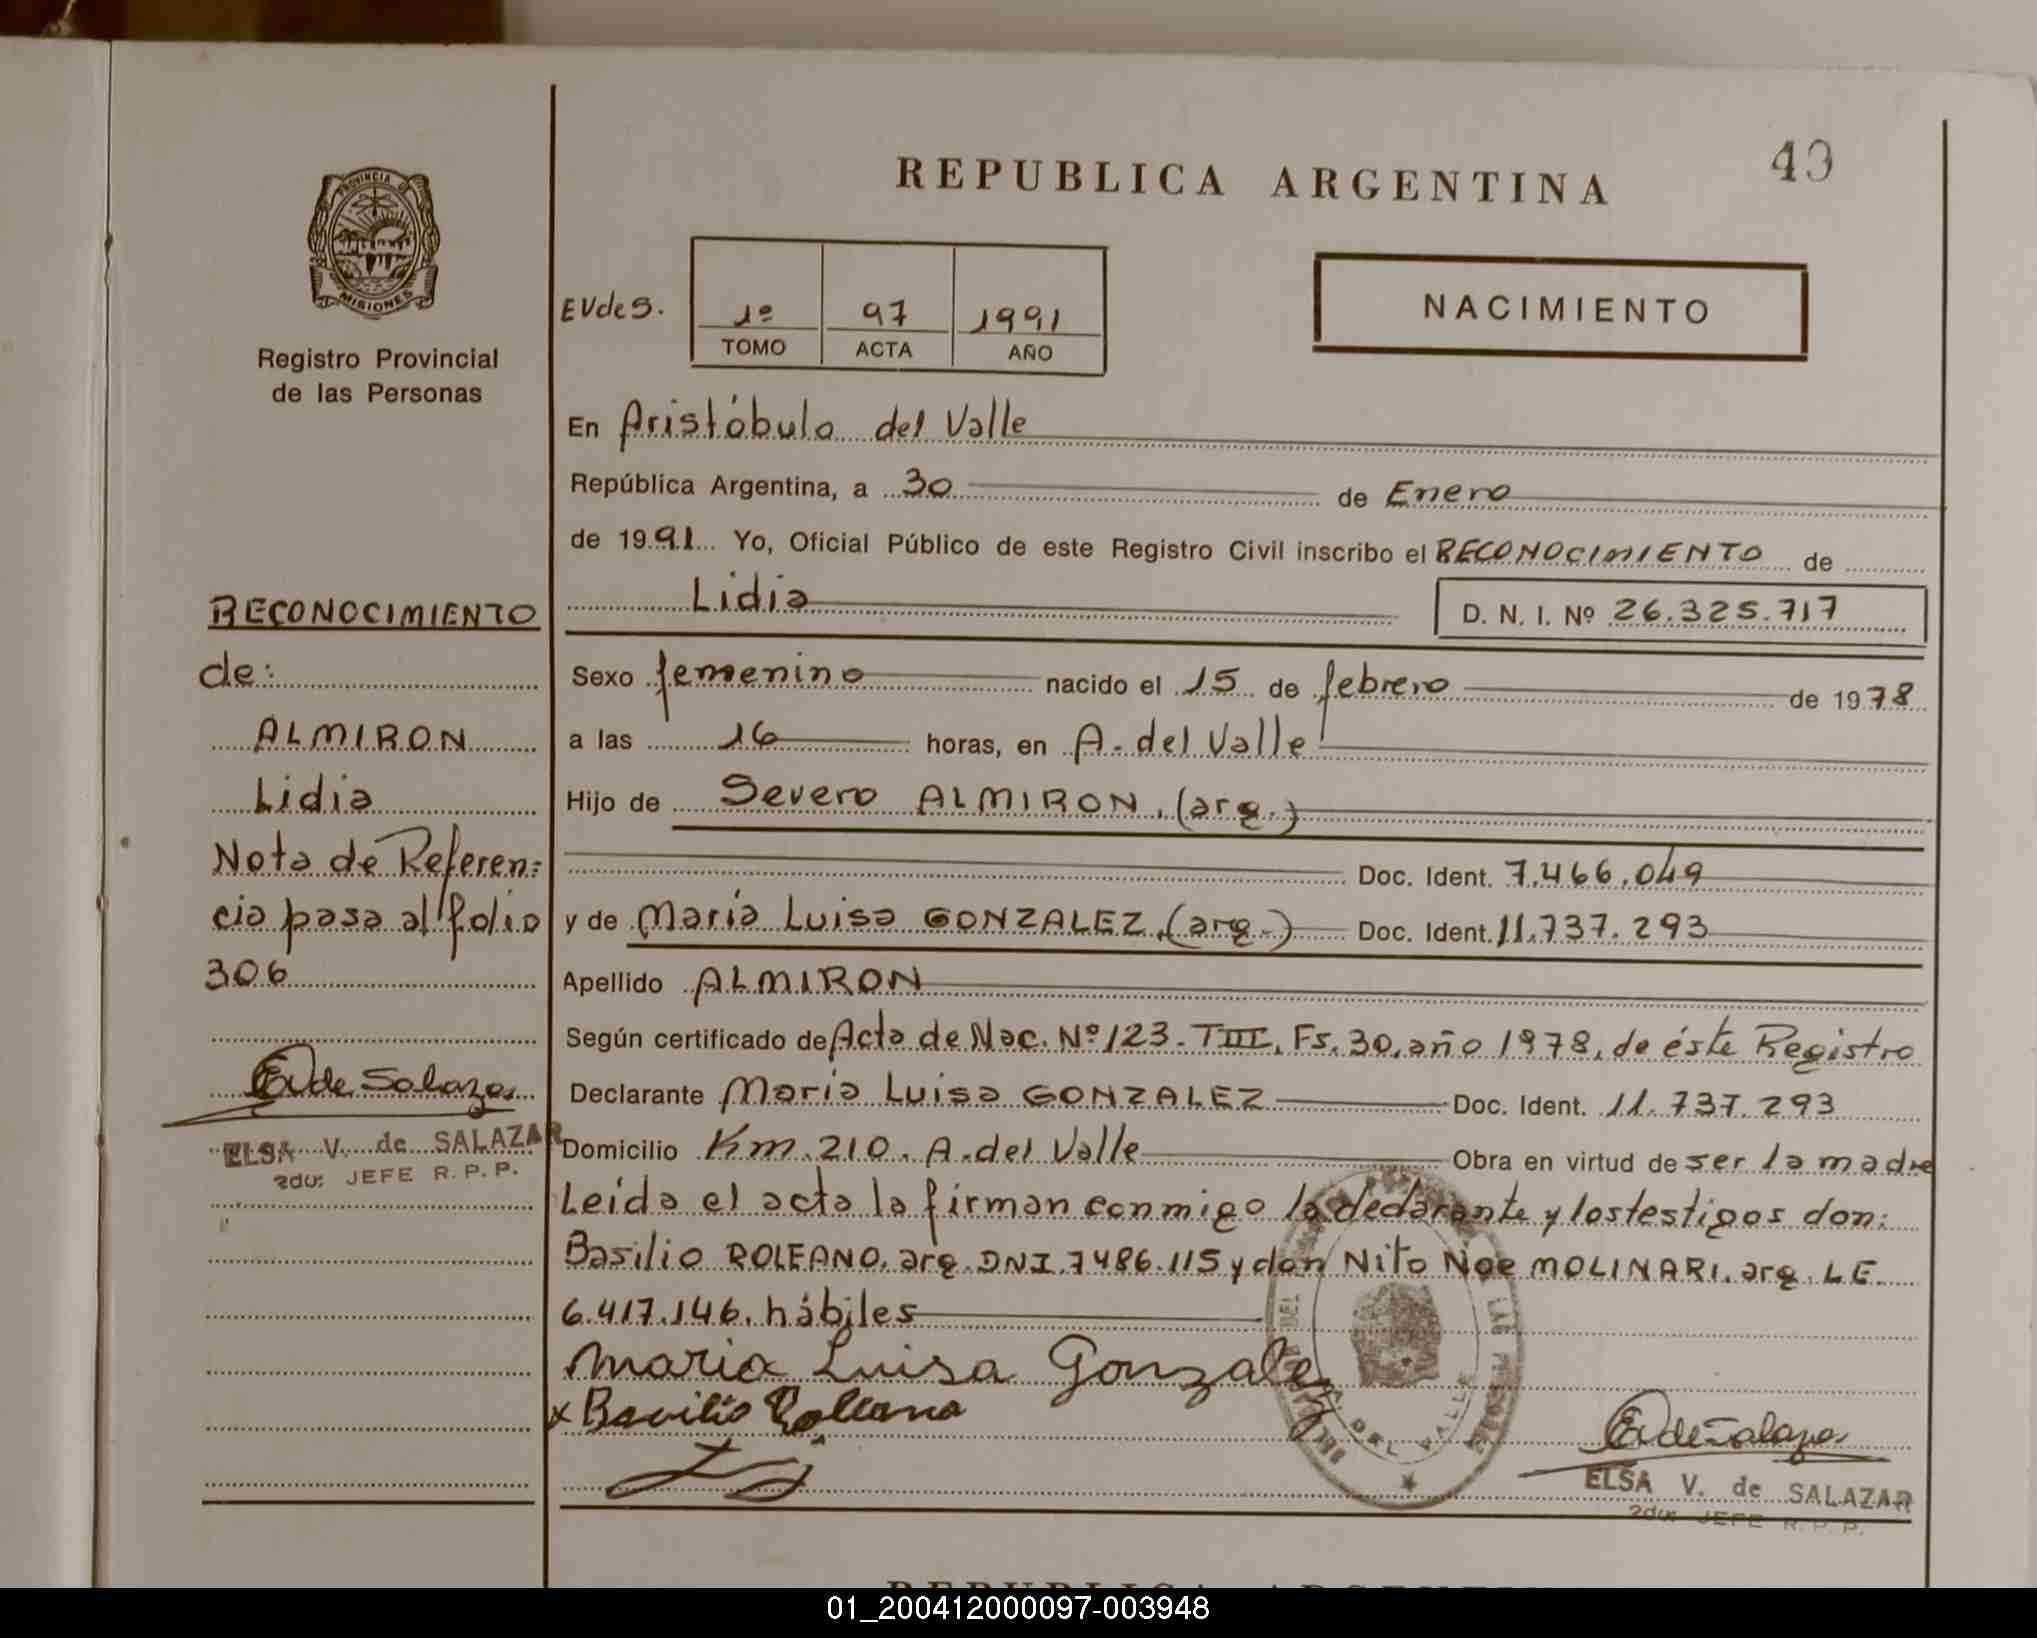 REPUBLICA ARGENTINA
43
PROVINCIA DE
MISIONES
Registro Provincial
de las Personas
EVdeS.
1º 97 1991
TOMO ACTA AÑO
NACIMIENTO
En Aristóbulo del Valle
República Argentina, a 30 de Enero
de 1991 Yo, Oficial Público de este Registro Civil inscribo el RECONOCIMIENTO de
Lidia D. N. I. Nº 26.325.717
Sexo femenino nacido el 15 de febrero de 1978
a las 16 horas, en A. del Valle
Hijo de Severo ALMIRON. (arg.)
Doc. Ident. 7.466.049
y de María Luisa GONZALEZ (arg.) Doc. Ident. 11.737.293
Apellido ALMIRON
Según certificado de Acta de Nac. Nº 123. TIII, Fs. 30, año 1978, de éste Registro
Declarante María Luisa GONZALEZ Doc. Ident. 11.737.293
Domicilio Km. 210. A. del Valle Obra en virtud de ser la madre
Leída el acta la firman conmigo la declarante y los testigos don:
Basilio ROLEANO. arg. DNI. 7486.115 y don Nito Noe MOLINARI. arg. L.E.
6.417.146. hábiles
Maria Luisa Gonzalez
x
EVde Salazar
ELSA V. de SALAZAR
2do. JEFE R. P. P.
DEL VALLE
RECONOCIMIENTO
de:
ALMIRON
Lidia
Nota de Referen=
cia pasa al folio
306
EVde Salazar
ELSA V. de SALAZAR
2do. JEFE R. P. P.
01_200412000097-003948